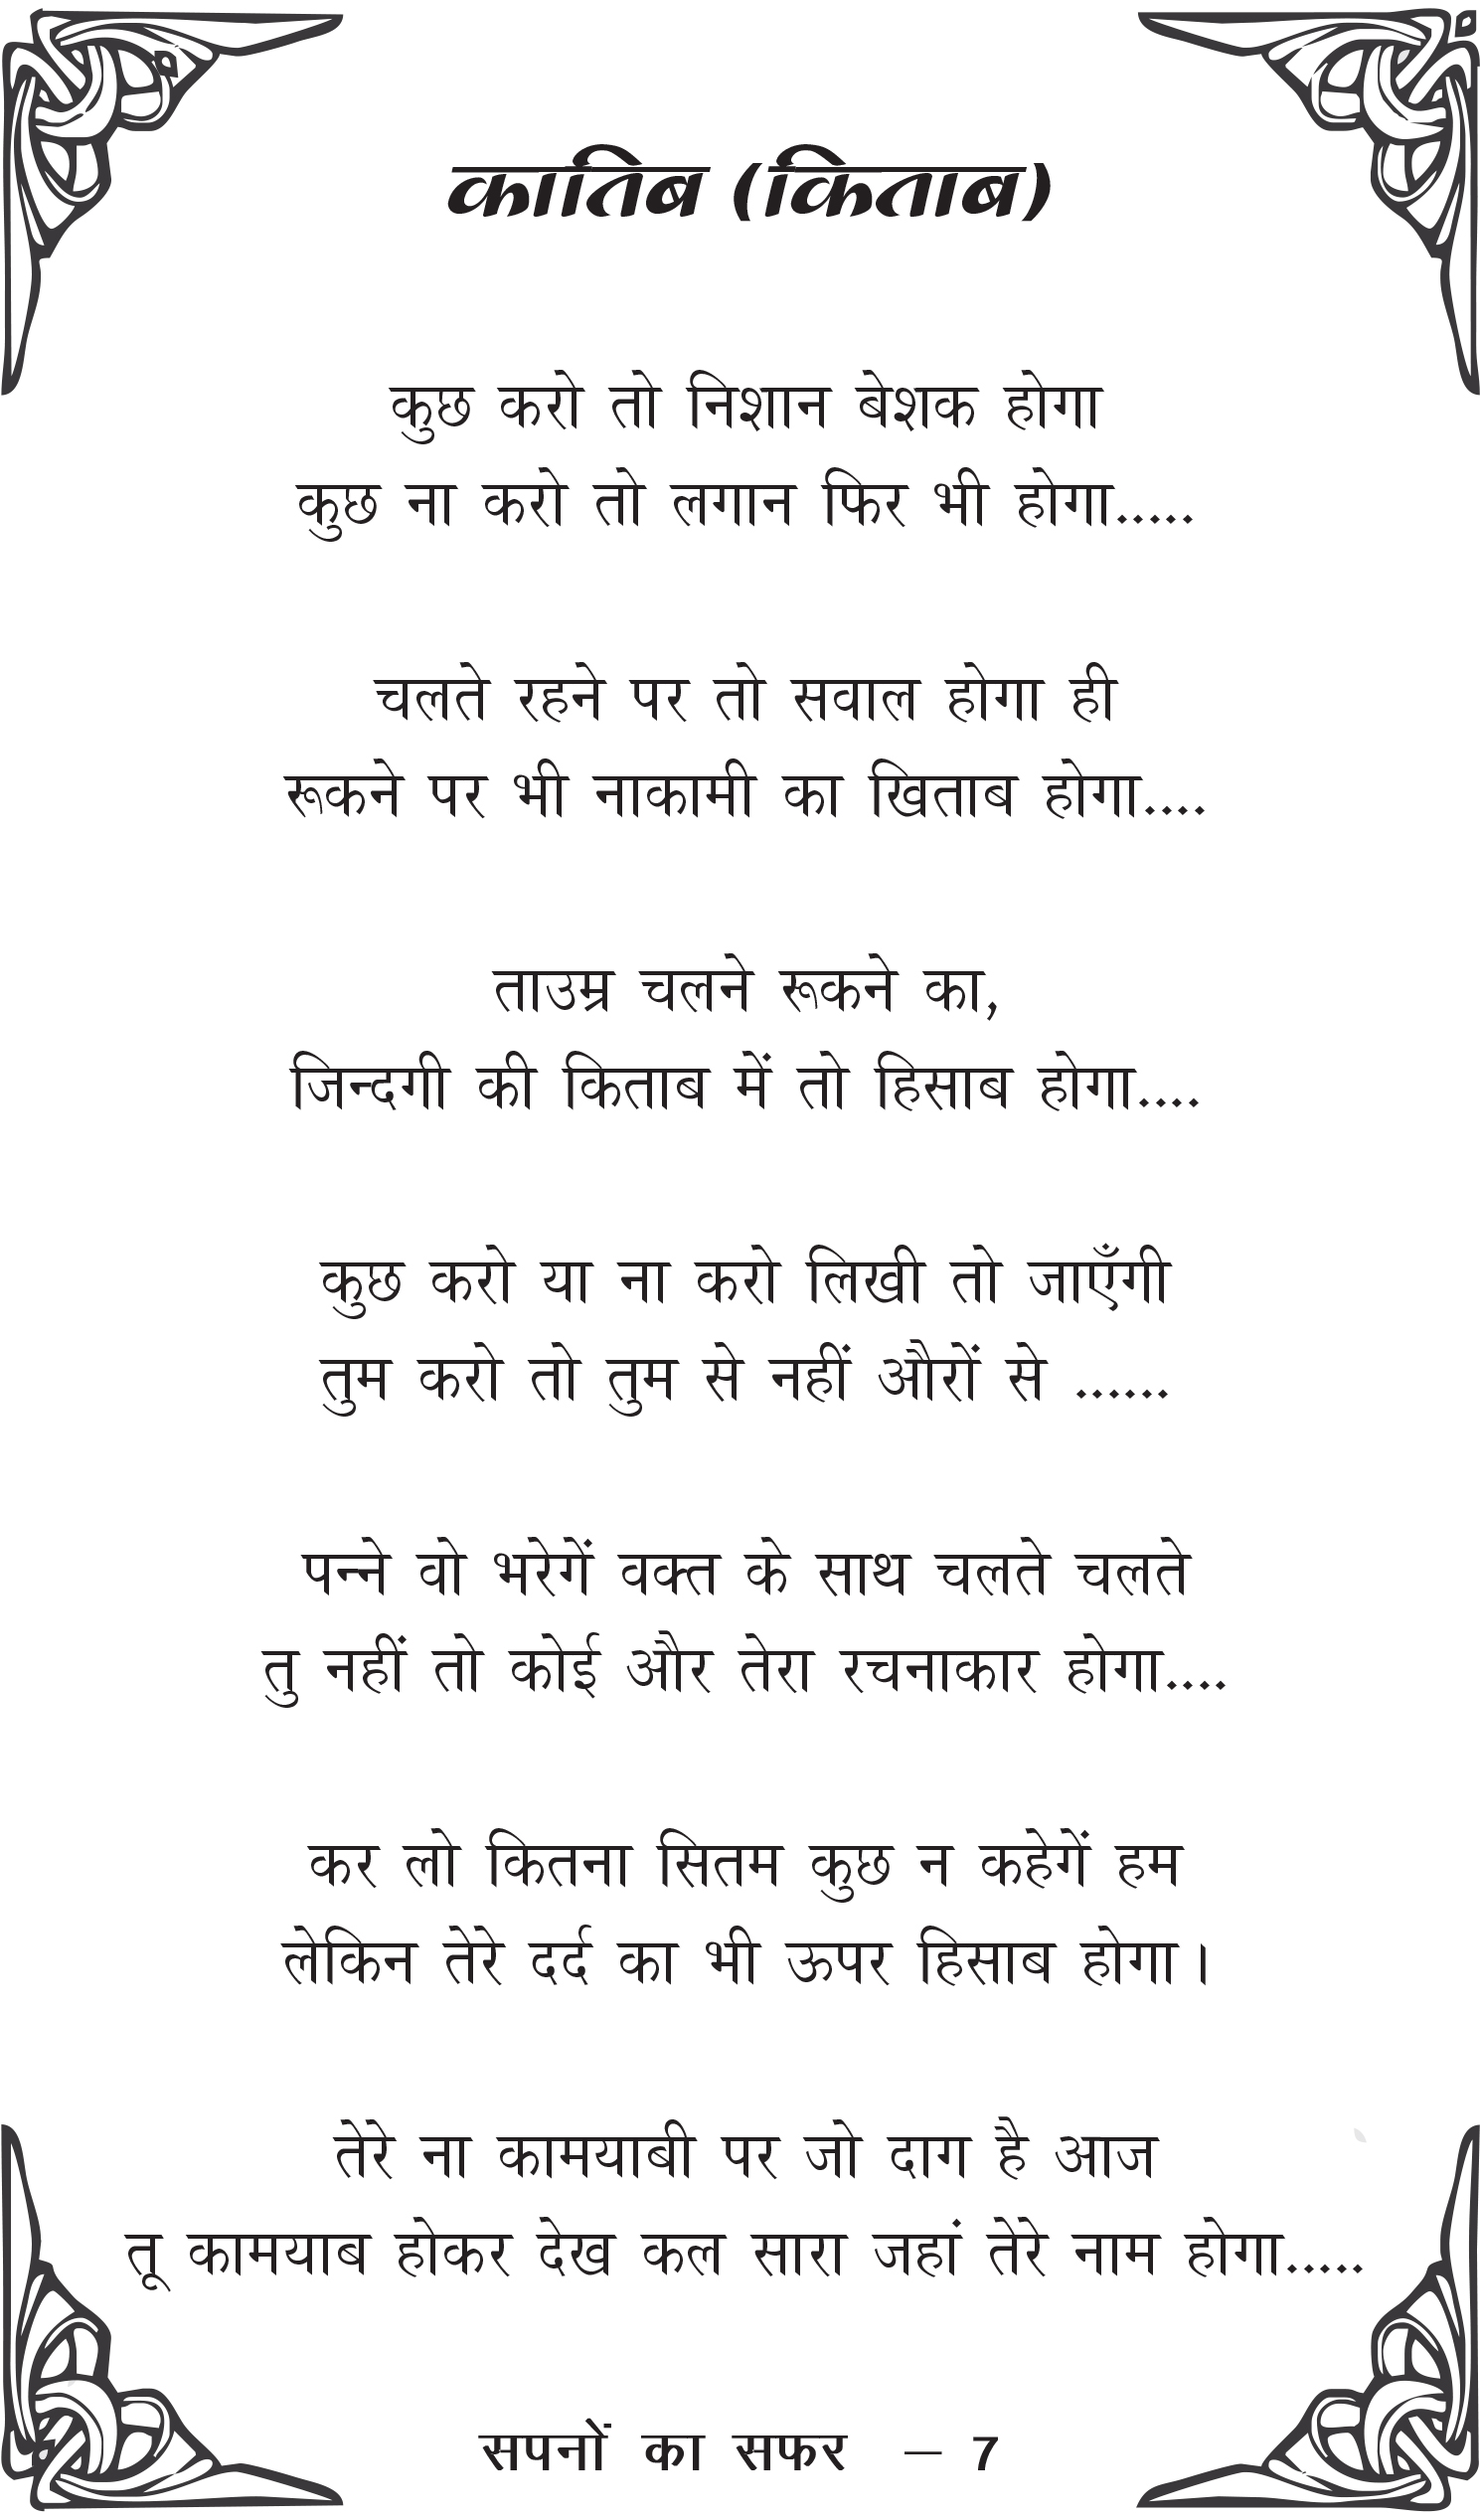 कातिब (किताब)
कुछ करो तो निशान बेशक होगा
कुछ ना करो तो लगान फिर भी होगा.....
चलते रहने पर तो सवाल होगा ही
रूकने पर भी नाकामी का खिताब होगा....
ताउम्र चलने रूकने का,
जिन्दगी की किताब में तो हिसाब होगा....
कुछ करो या ना करो लिखी तो जाएँगी
तुम करो तो तुम से नहीं औरों से ......
पन्ने वो भरेगें वक्त के साथ चलते चलते
तु नहीं तो कोई और तेरा रचनाकार होगा....
कर लो कितना सितम कुछ न कहेगें हम
लेकिन तेरे दर्द का भी ऊपर हिसाब होगा।
तेरे ना कामयाबी पर जो दाग है आज
तू कामयाब होकर देख कल सारा जहां तेरे नाम होगा.....
सपनों का सफर – 7